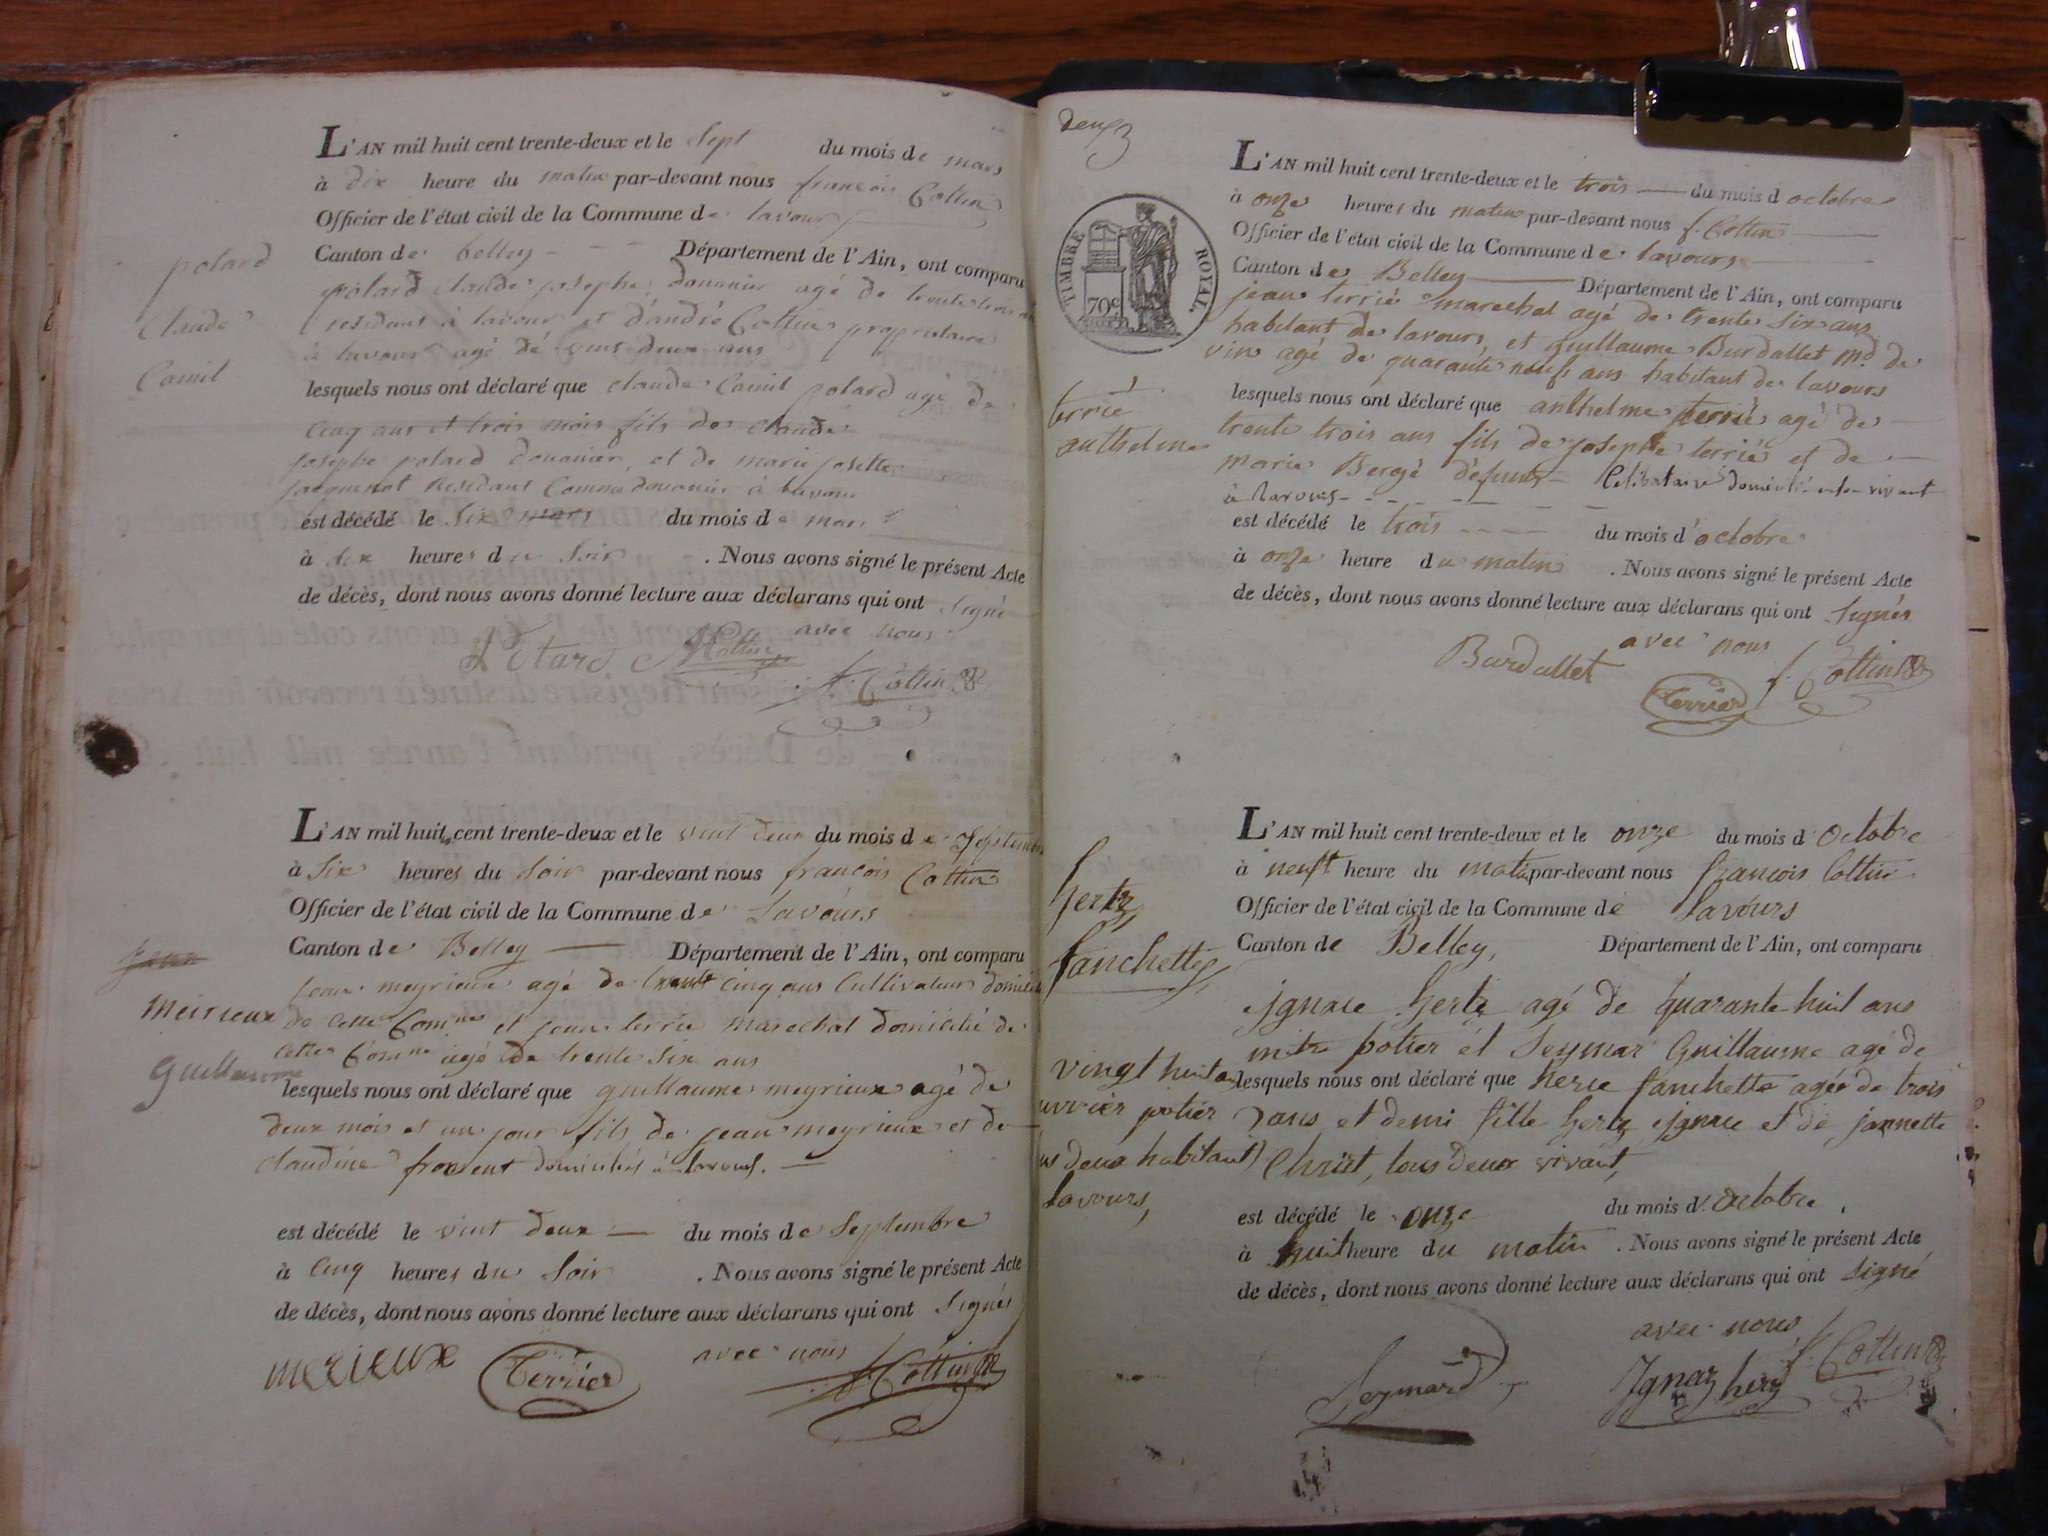 polard
Claude
Camil
L'AN mil huit cent trente-deux et le Sept du mois de mars
à dix heure du matin par-devant nous françois Cottin
Officier de l'état civil de la Commune de lavour
Canton de belley - - Département de l'Ain, ont comparu
polard claude josephe douanier agé de trente trois
residant à lavour et d'andré Cottin propriétaire
à lavour agé de vint deux ans
lesquels nous ont déclaré que claude Camil polard agé de
cinq ans et trois mois fils de claude
josephe polard douanier, et de marie josette
jacquenot residant comme douanier à lavour
est décédé le Six mars du mois de mars
à six heures du Soir . Nous avons signé le présent Acte
de décès, dont nous avons donné lecture aux déclarans qui ont Signé
avec nous
Polard Cottin
f. Cottin
jean
meirieux
guillaume
L'AN mil huit cent trente-deux et le vint deux du mois de Septembre
à Six heures du Soir par-devant nous françois Cottin
Officier de l'état civil de la Commune de Lavours
Canton de Belley Département de l'Ain, ont comparu
jean meyrieux agé de trente cinq ans Cultivateur domicilié
de cette Comne et jean terrié marechal domicilié de
cette Comne agé de trente Six ans
lesquels nous ont déclaré que guillaume meyrieux agé de
deux mois et un jour fils de jean meyrieux et de
claudine froment domiciliés à lavours.
est décédé le vint deux du mois de Septembre
à Cinq heures du Soir . Nous avons signé le présent Acte
de décès, dont nous avons donné lecture aux déclarans qui ont Signés
avec nous
merieux Terrier f. Cottin
deux
TIMBRE ROYAL
70c
terrié
anthelme
L'AN mil huit cent trente-deux et le trois du mois d octobre
à onze heures du matin par-devant nous f. Cottin
Officier de l'état civil de la Commune de lavours
Canton de Belley Département de l'Ain, ont comparu
jean terrié marechal agé de trente Six ans
habitant de lavours, et guillaume Burdallet md. de
vin agé de quarante neufs ans habitant de lavours
lesquels nous ont déclaré que anthelme terrié agé de
trente trois ans fils de josephe terrié et de
marie Bergé défunts Celibataire domicilié vivant
à Lavours
est décédé le trois du mois d'octobre
à onze heure du matin . Nous avons signé le présent Acte
de décès, dont nous avons donné lecture aux déclarans qui ont Signés
avec nous
Burdallet Terrier f. Cottin
hertz
fanchette
L'AN mil huit cent trente-deux et le onze du mois d'Octobre
à neuft heure du matin par-devant nous françois Cottin
Officier de l'état civil de la Commune de Lavours
Canton de Belley, Département de l'Ain, ont comparu
ygnace hertz agé de quarante huit ans
mtre potier et Seymar Guillaume agé de
vingt huit ans
ouvrier potier
deux habitant
Lavours,
lesquels nous ont déclaré que herce fanchette agée de trois
ans et demi fille hertz ygnace et de jannette
Christ, tous deux vivant,
est décédé le onze du mois d'Octobre,
à huit heure du matin . Nous avons signé le présent Acte
de décès, dont nous avons donné lecture aux déclarans qui ont Signé
avec nous,
Seymard Ignaz herz f. Cottin